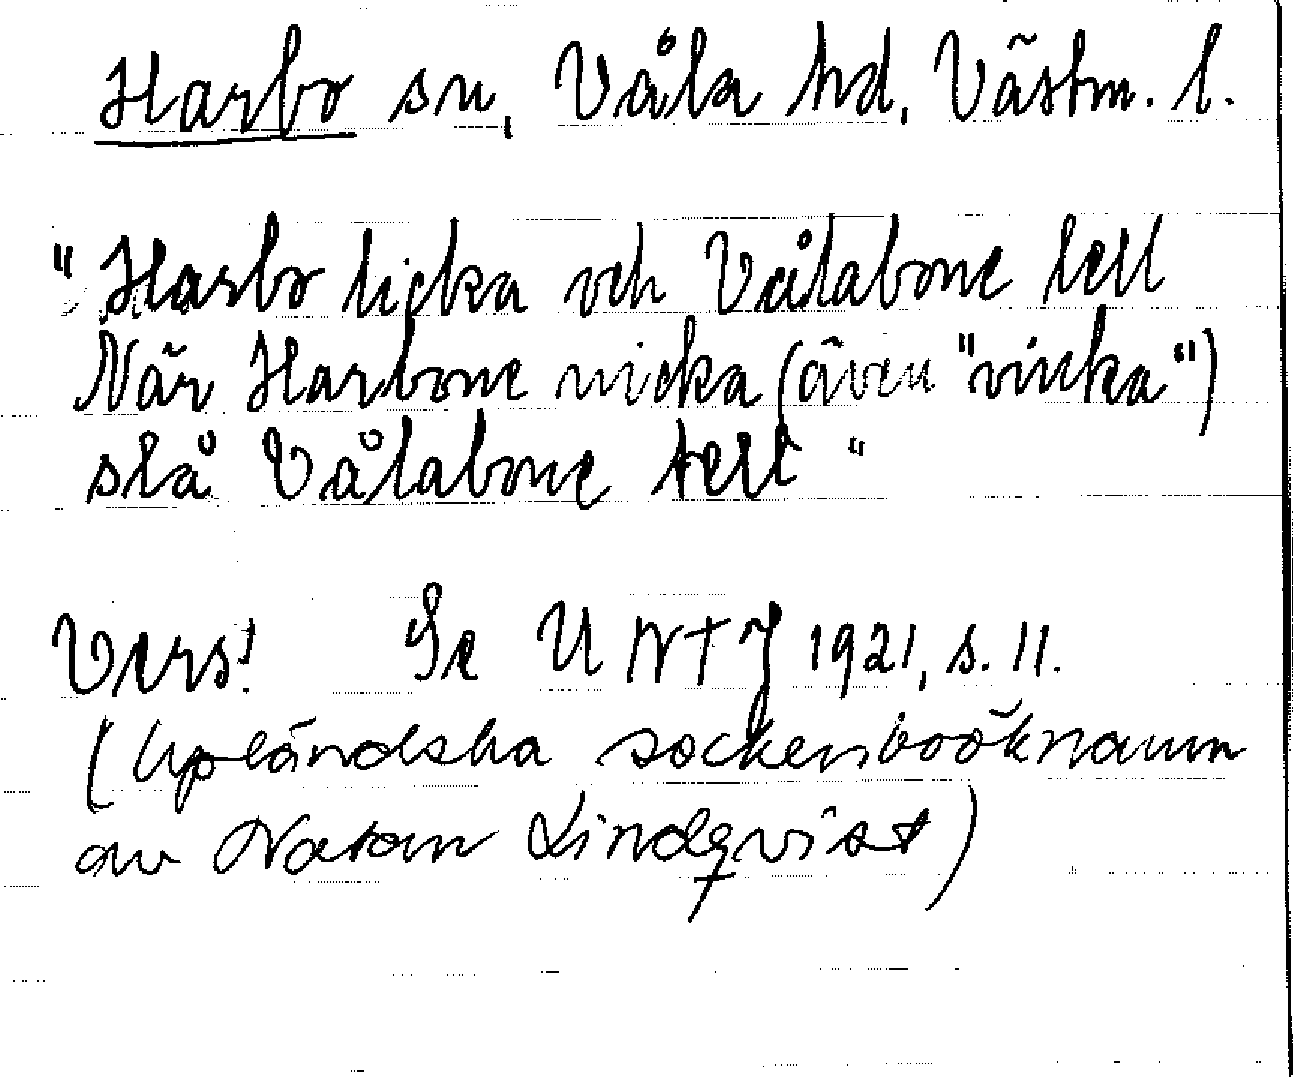 Harbo sn, Våla hd, Västm. l.
"Harbo licka och Vålabone lell
När Harbone nicka (även "vicka")
slå Vålabone tell"
Vers! Se UNTJ 1921, s. 11.
(Upländska sockenboöknamn
av Natan Lindqvist)